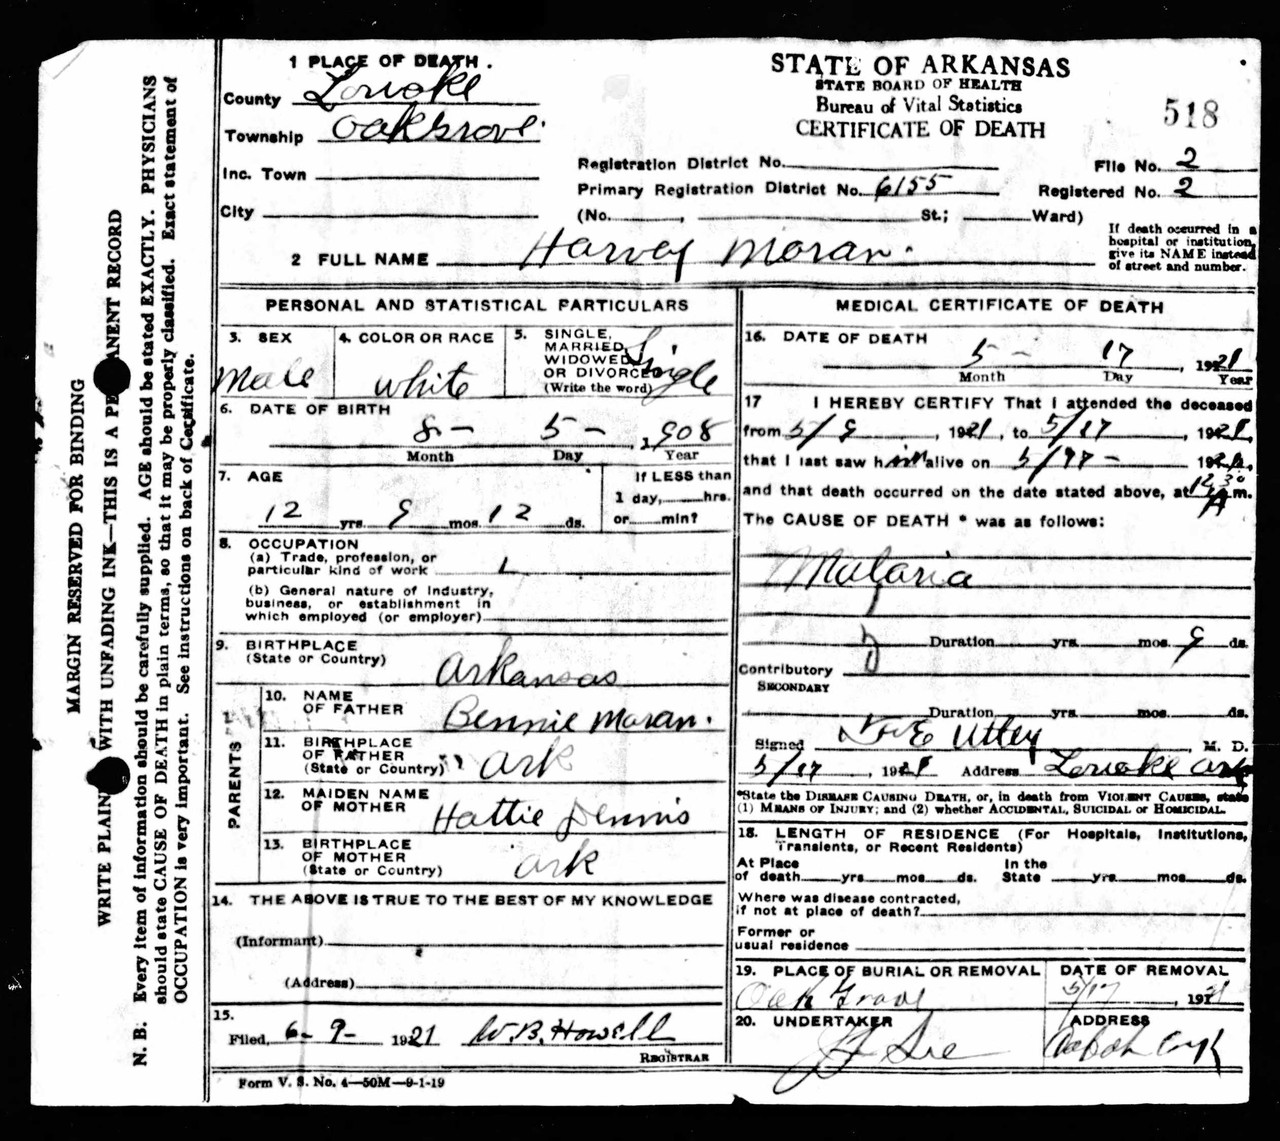 MARGIN RESERVED FOR BINDING
WRITE PLAIN WITH UNFADING INK—THIS IS A PE ANENT RECORD
N. B. Every item of information should be carefully supplied. AGE should be stated EXACTLY. PHYSICIANS
should state CAUSE OF DEATH in plain terms, so that it may be properly classified. Exact statement of
OCCUPATION is very important. See instructions on back of Certificate.
1 PLACE OF DEATH.
County Lonoke
Township Oak Grove
Inc. Town
City
STATE OF ARKANSAS
STATE BOARD OF HEALTH
Bureau of Vital Statistics
CERTIFICATE OF DEATH
518
Registration District No.
File No. 2
Primary Registration District No. 6155
Registered No. 2
(No. , St.; Ward)
If death occurred in a
hospital or institution,
give its NAME instead
of street and number.
2 FULL NAME Harvey Moran
PERSONAL AND STATISTICAL PARTICULARS
3. SEX
Male
4. COLOR OR RACE
White
5. SINGLE,
MARRIED,
WIDOWED,
OR DIVORCED
(Write the word)
Single
6. DATE OF BIRTH
8 - 5 - 1908
Month Day Year
7. AGE
12 yrs. 9 mos. 12 ds.
If LESS than
1 day, hrs.
or min?
8. OCCUPATION
(a) Trade, profession, or
particular kind of work
(b) General nature of Industry,
business, or establishment in
which employed (or employer)
9. BIRTHPLACE
(State or Country)
Arkansas
PARENTS
10. NAME
OF FATHER
Bennie Moran.
11. BIRTHPLACE
OF FATHER
(State or Country)
Ark
12. MAIDEN NAME
OF MOTHER
Hattie Dennis
13. BIRTHPLACE
OF MOTHER
(State or Country)
Ark
14. THE ABOVE IS TRUE TO THE BEST OF MY KNOWLEDGE
(Informant)
(Address)
15.
Filed, 6-9- 1921 W.B. Howell
REGISTRAR
Form V. S. No. 4—50M—9-1-19
MEDICAL CERTIFICATE OF DEATH
16. DATE OF DEATH
5 - 17, 1921
Month Day Year
17 I HEREBY CERTIFY That I attended the deceased
from 5/9, 1921, to 5/17, 1921,
that I last saw him alive on 5/17 - 1921,
and that death occurred on the date stated above, at 12 30 A m.
The CAUSE OF DEATH * was as follows:
Malaria
Duration yrs. mos. 9 ds.
Contributory
SECONDARY
Duration yrs. mos. ds.
Signed E Utley, M. D.
5/17, 1921 Address Lonoke Ark
*State the DISEASE CAUSING DEATH, or, in death from VIOLENT CAUSES, state
(1) MEANS OF INJURY; and (2) whether ACCIDENTAL, SUICIDAL or HOMICIDAL.
18. LENGTH OF RESIDENCE (For Hospitals, Institutions,
Transients, or Recent Residents)
At Place
of death yrs. mos. ds.
In the
State yrs. mos. ds.
Where was disease contracted,
if not at place of death?
Former or
usual residence
19. PLACE OF BURIAL OR REMOVAL
Oak Grove
DATE OF REMOVAL
5/17, 1921
20. UNDERTAKER
ADDRESS